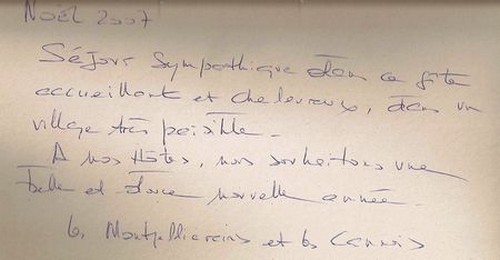 Noël 2007
Séjour sympathique dans ce gîte
accueillant et chaleureux, dans un
village très paisible.
A nos Hôtes, nous souhaitons une
belle et douce nouvelle année.
Les Montpelliérains et les Cannois